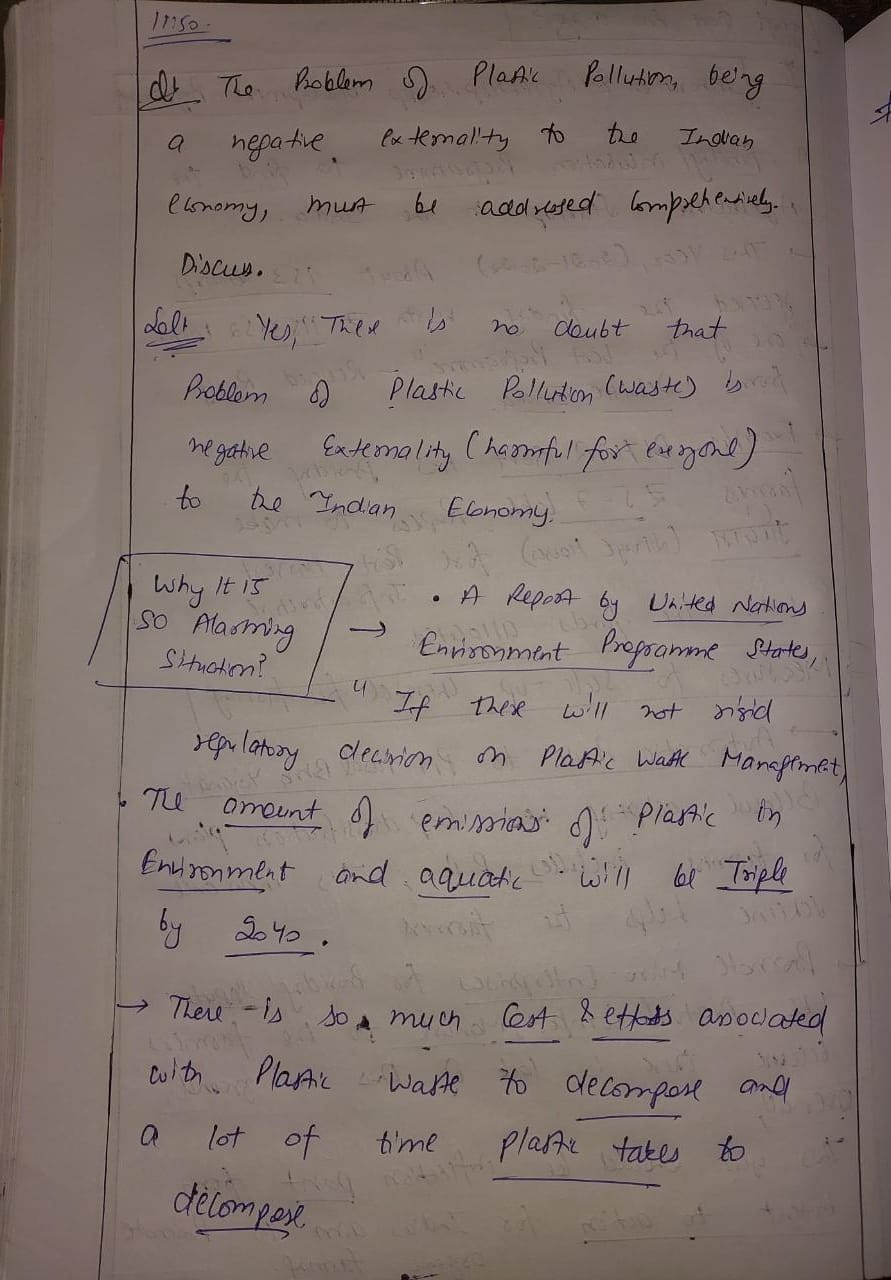 11:50
Q1 The Problem of Plastic Pollution, being
a negative externality to the Indian
economy, must be addressed comprehensively.
Discuss.
Sol: Yes, There is no doubt that
Problem of Plastic Pollution (waste) is
negative Externality (harmful for everyone)
to the Indian Economy.
Why It is
so Alarming
Situation?
→ • A Report by United Nations
Environment Programme States,
" If there will not rigid
regulatory decision on Plastic Waste Management,
• The amount of emissions of Plastic in
Environment and aquatic will be Triple
by 2040.
→ There is so much Cost & efforts associated
with Plastic Waste to decompose and
a lot of time plastic takes to
decompose